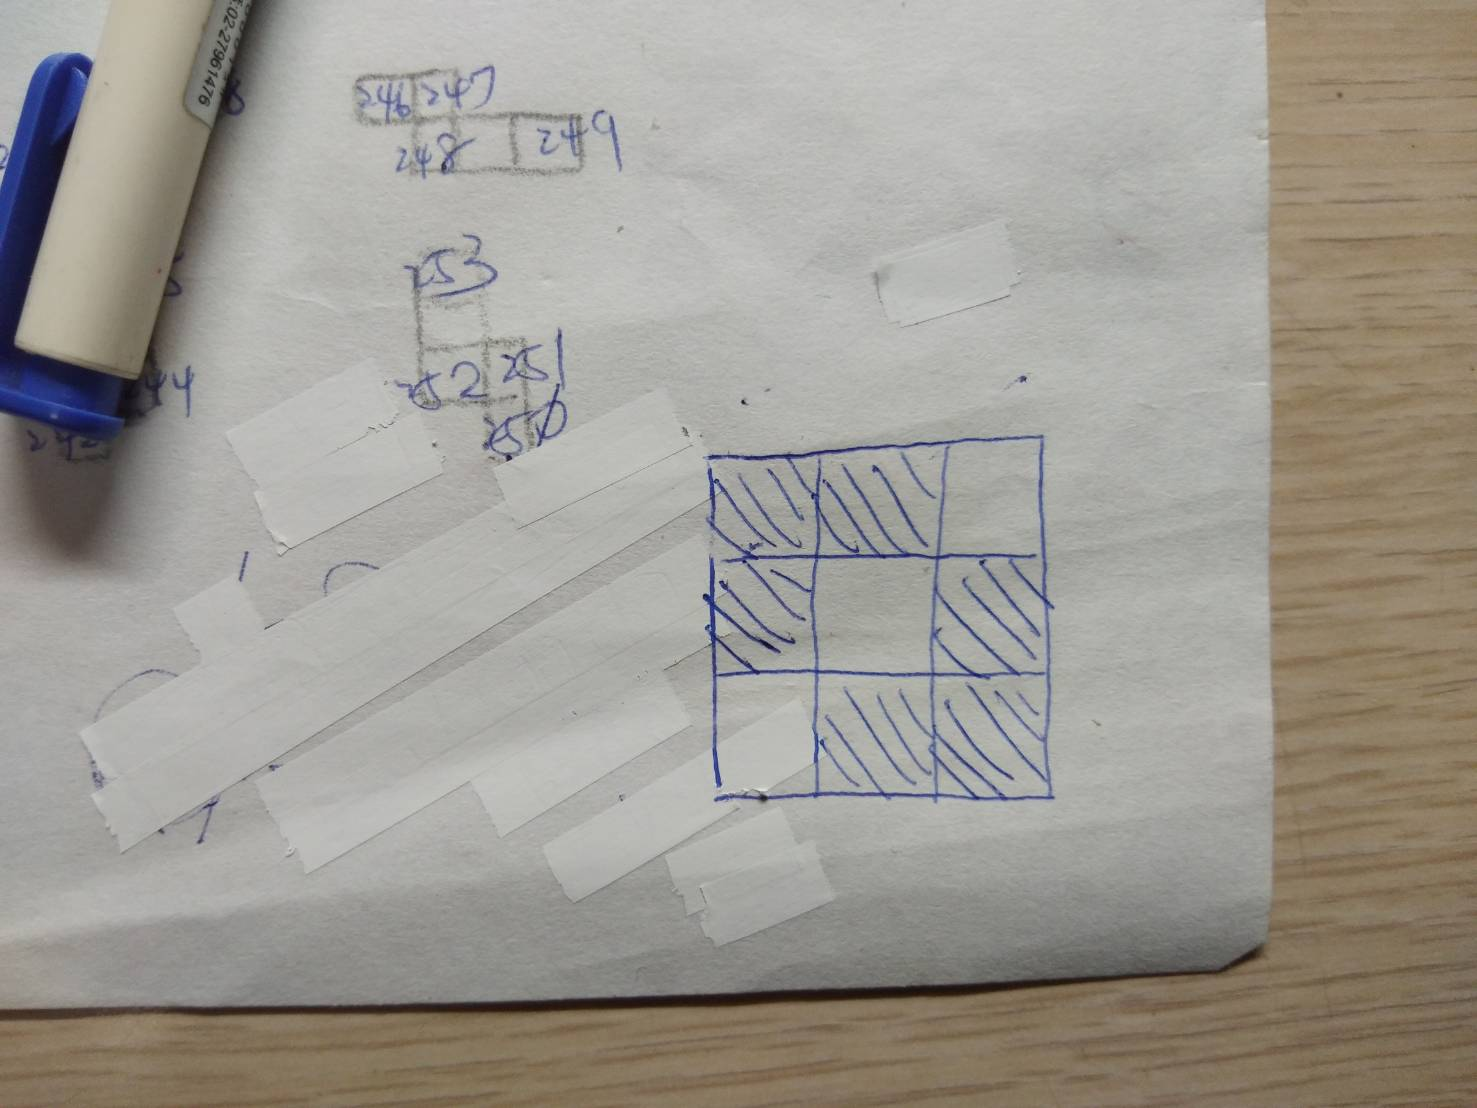 02-27961476
246 247
248 249
253
252 251
250
44
242